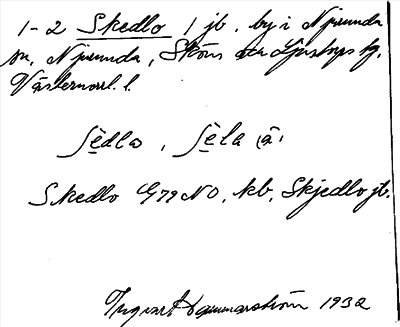 1-2 Skedlo 1 jb. by i Njurunda
sn, Njurunda, Sköns o Ljustorps tg,
Västernorrl. l.
Sedlo, Sela (ä)
Skedlo G79NO, kb. Skjedlo jb.
Ingvar Hammarström 1932